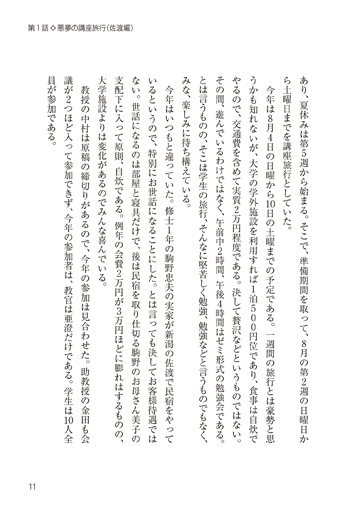 第1話◇悪夢の講座旅行(佐渡編)
あり、夏休みは第５週から始まる。そこで、準備期間を取って、８月の第２週の日曜日か
ら土曜日までを講座旅行としていた。
　今年は８月４日の日曜から10日の土曜までの予定である。一週間の旅行とは豪勢と思
うかも知れないが、大学の学外施設を利用すれば１泊５００円位であり、食事は自炊で
やるので、交通費を含めて実質２万円程度である。決して贅沢などというものではない。
その間、遊んでいるわけではなく、午前中２時間、午後４時間はゼミ形式の勉強会である。
とは言うものの、そこは学生の旅行、そんなに堅苦しく勉強、勉強などと言うものでもなく、
みな、楽しみに待ち構えている。
　今年はいつもと違っていた。修士１年の駒野忠夫の実家が新潟の佐渡で民宿をやって
いるというので、特別にお世話になることにした。とは言っても決してお客様待遇では
ない。世話になるのは部屋と寝具だけで、後は民宿を取り仕切る駒野のお母さん美子の
支配下に入って原則、自炊である。例年の会費２万円が３万円ほどに膨れはするものの、
大学施設よりは変化があるのでみんな喜んでいる。
　教授の中村は原稿の締切りがあるので、今年の参加は見合わせた。助教授の金田も会
議が２つほど入って参加できず、今年の参加者は、教官は亜澄だけである。学生は10人全
員が参加である。
11